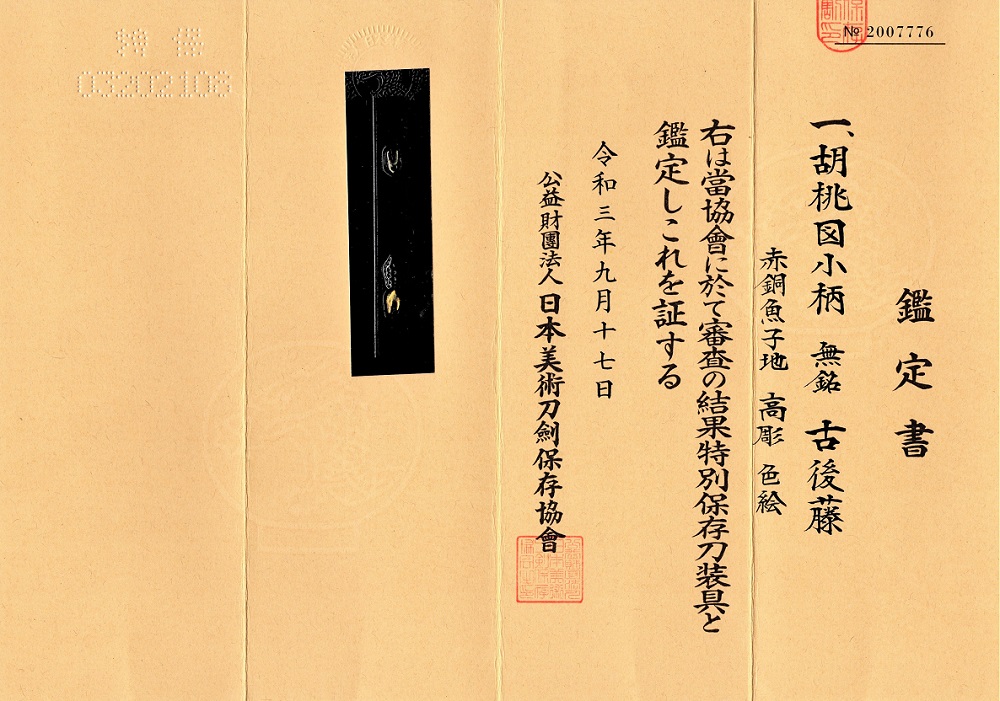 № 2007776
鑑定書
一、胡桃図小柄 無銘 古後藤
赤銅魚子地 高彫 色絵
右は當協會に於て審査の結果特別保存刀装具と
鑑定しこれを証する
令和三年九月十七日
公益財團法人 日本美術刀劍保存協會
特保
03202108